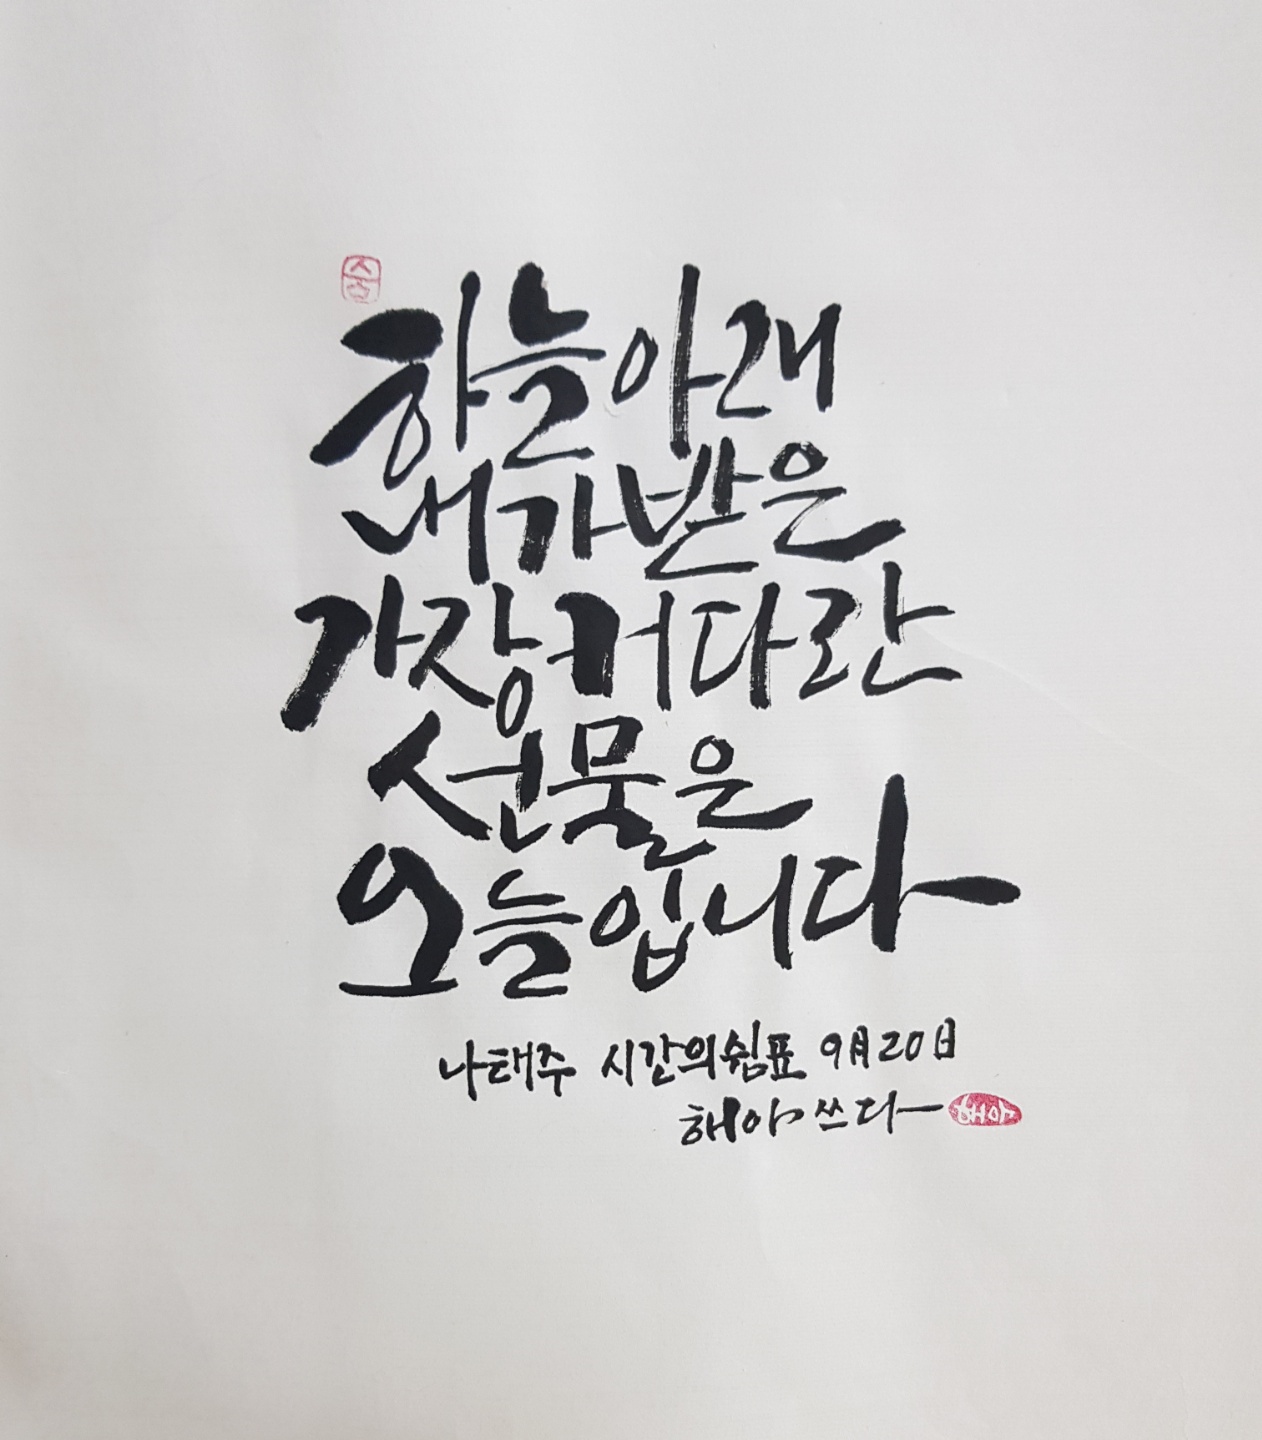 하늘 아래
내가 받은
가장 커다란
선물은
오늘입니다
나태주 시간의 쉼표 9月 20日
해야 쓰다
해야